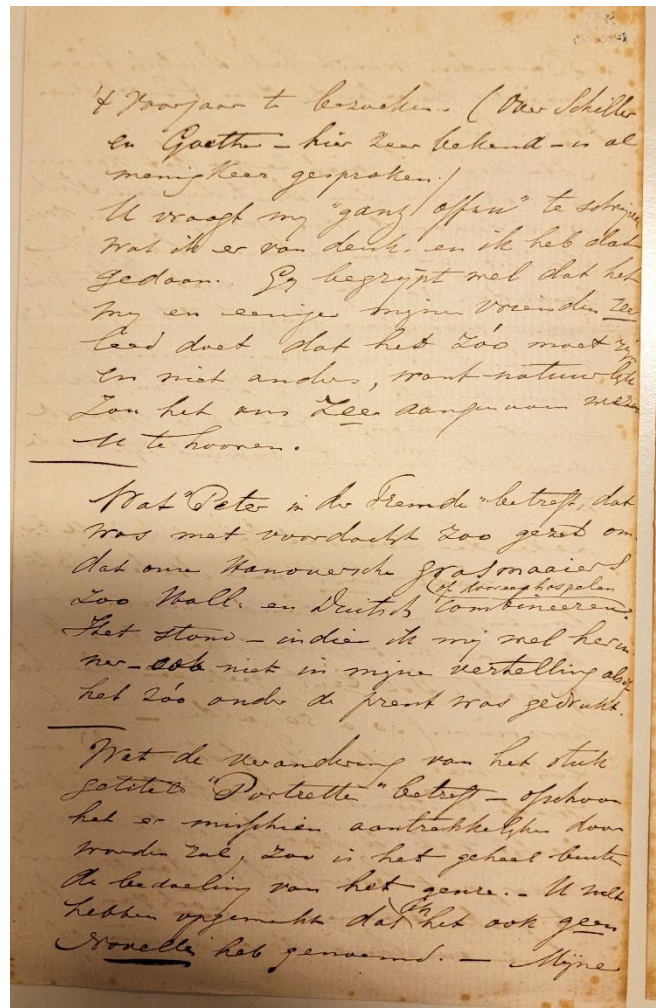 't Voorjaar te bezoeken. (Over Schiller
en Goethe – hier zeer bekend – is al
menigkeer gesproken.)
U vraagt my "ganz offen" te schrijven
wat ik er van denk. en ik heb dat
gedaan. Gy begrypt wel dat het
my en eenige mijner vrienden zeer
leed doet dat het zóo moet zijn
en niet anders, want natuurlijk
zou het ons zeer aangenaam wezen
U te hooren.
Wat "Peter in der Fremde" betreft, dat
was met voordacht zoo gezet om
dat onze Hanoversche grasmaaiers
(of dooreenhaspelen
zoo Holl. en Duitsch combineeren.
Het stond – indien ik mij wel herin
ner – ook niet in mijne vertelling alsof
het zóo onder de prent was gedrukt.
Wat de verandering van het stuk
getiteld "Portretten" betreft – ofschoon
het er misschien aantrekkelijker door
worden zal, zoo is het geheel buiten
de bedoeling van het genre. – U zult
hebben opgemerkt dat ik het ook geen
Novelle heb genoemd. – Mijne